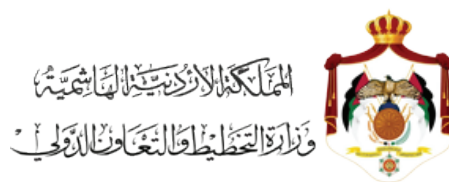 المملكة الأردنية الهاشمية
وزارة التخطيط والتعاون الدولي